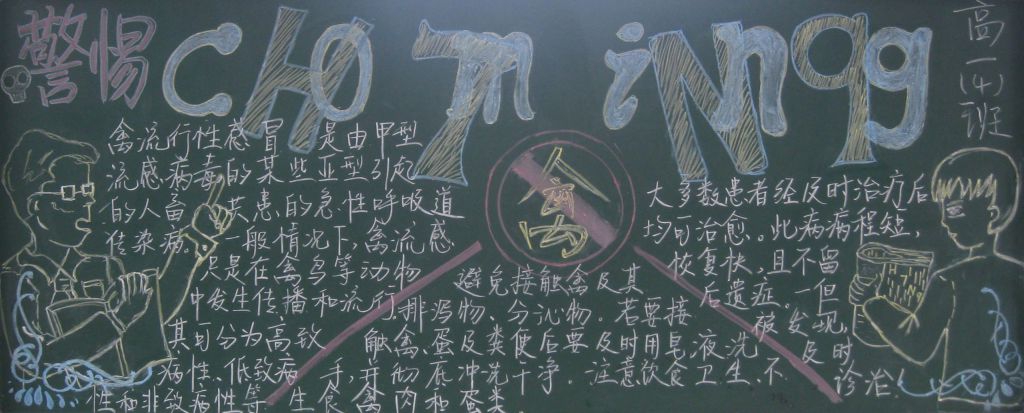 警惕 cHo7miNn9g
高一(4)班
禽流行性感冒 是由甲型
流感病毒的某些亚型引起
的人畜 共患的急性呼吸道
传染病, 一般情况下,禽流感
只是在禽鸟等动物
中发生传播和流行,
其可分为高致
病性、低致病
性和非致病性等
人禽
避免接触禽及其
排泻物、分泌物。若要接
触禽、蛋及类便后要及时用皂液洗
手,并彻底冲洗干净。注意饮食卫生、不
生食禽肉和蛋类
大多数患者经及时治疗后
均可治愈。此病病程短,
恢复快,且不留
后遗症。一但
被发现,
及时
诊治!